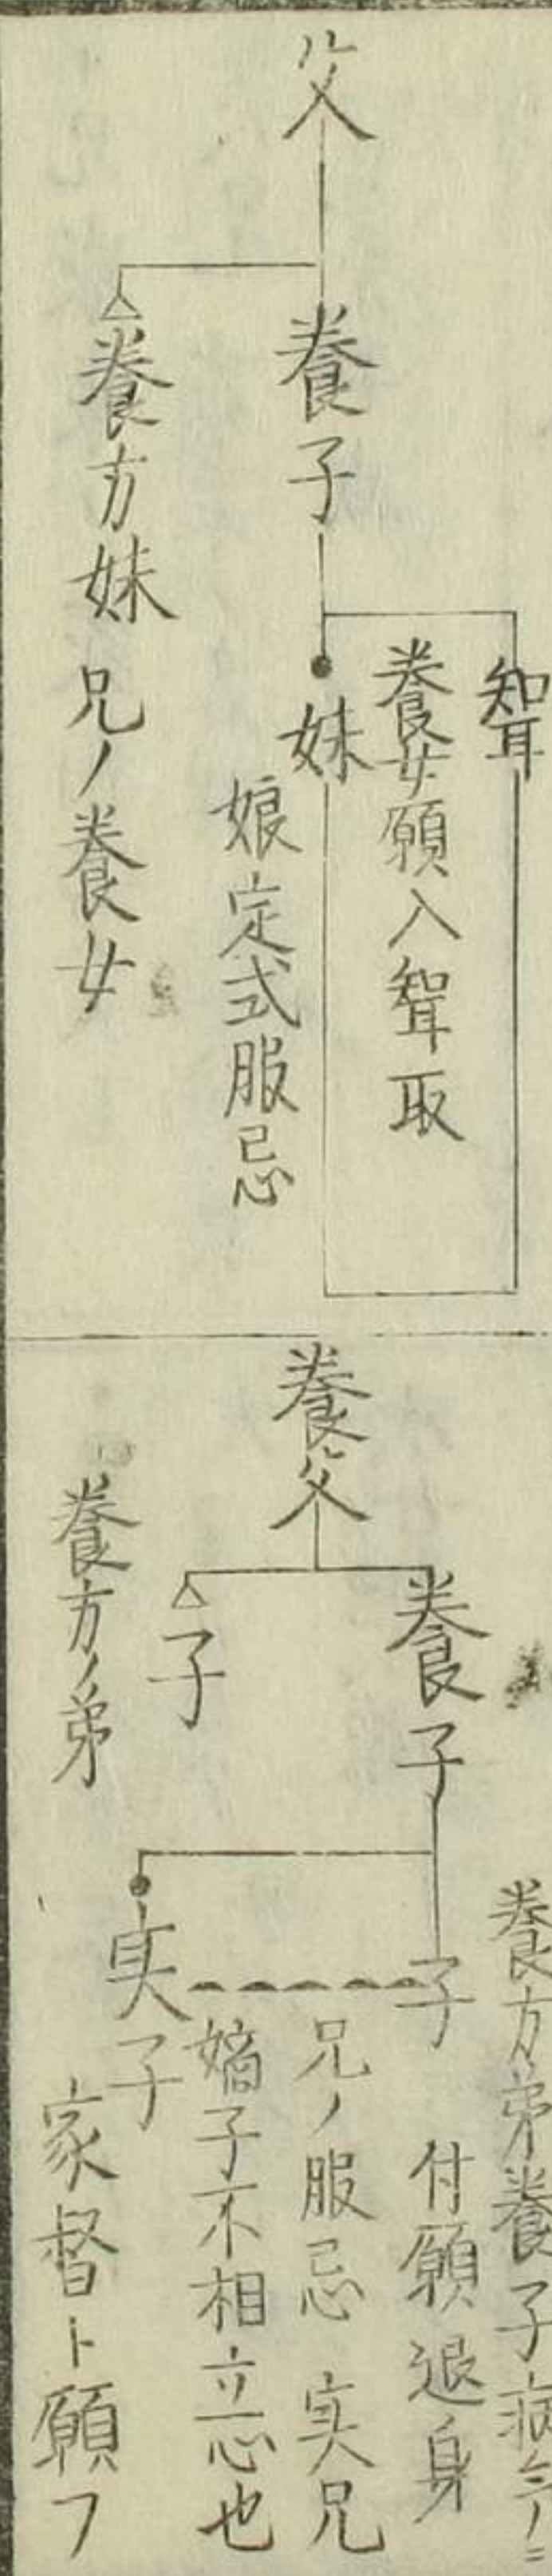 父
養子
聟
養女願入聟取
妹
娘定式服忌
養方妹 兄ノ養女
養父
養子
子
養方ノ弟
養方弟養子病気ノ
子 付願退身
兄ノ服忌 実兄
嫡子不相立心也
実子
家督ト願フ